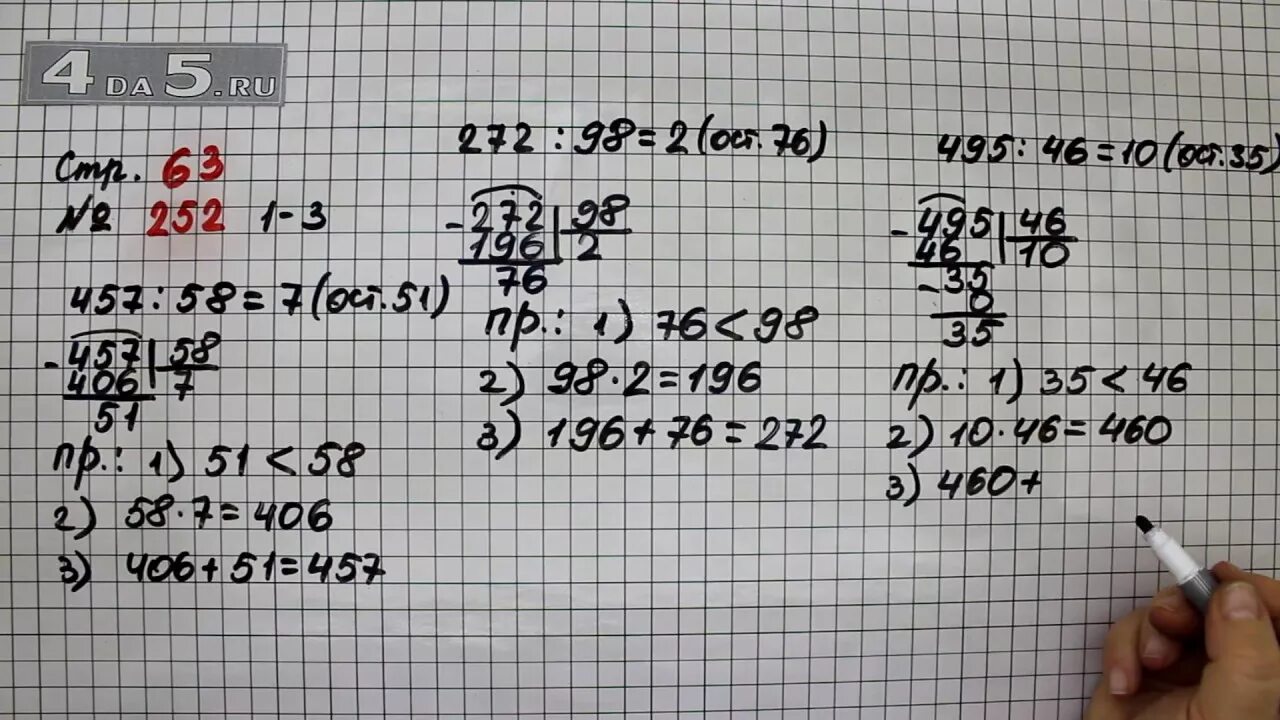 4DA5.RU
Стр. 63
№ 252 1-3
457 : 58 = 7 (ост. 51)
- 457 | 58
406 7
51
пр.: 1) 51 < 58
2) 58 · 7 = 406
3) 406 + 51 = 457
272 : 98 = 2 (ост. 76)
- 272 | 98
196 2
76
пр.: 1) 76 < 98
2) 98 · 2 = 196
3) 196 + 76 = 272
495 : 46 = 10 (ост. 35)
- 495 | 46
46 10
- 35
0
35
пр.: 1) 35 < 46
2) 10 · 46 = 460
3) 460 +